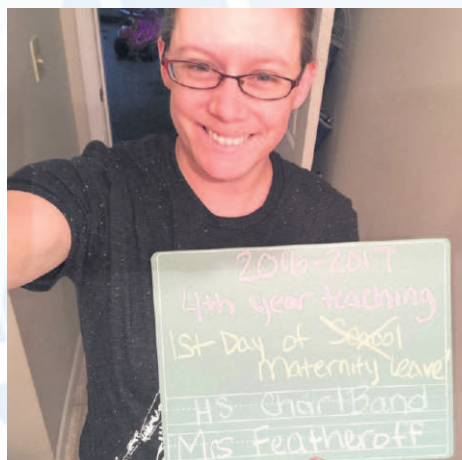 2016-2017
4th year teaching
1st Day of School
Maternity Leave
HS Choir/Band
Mrs Featheroff